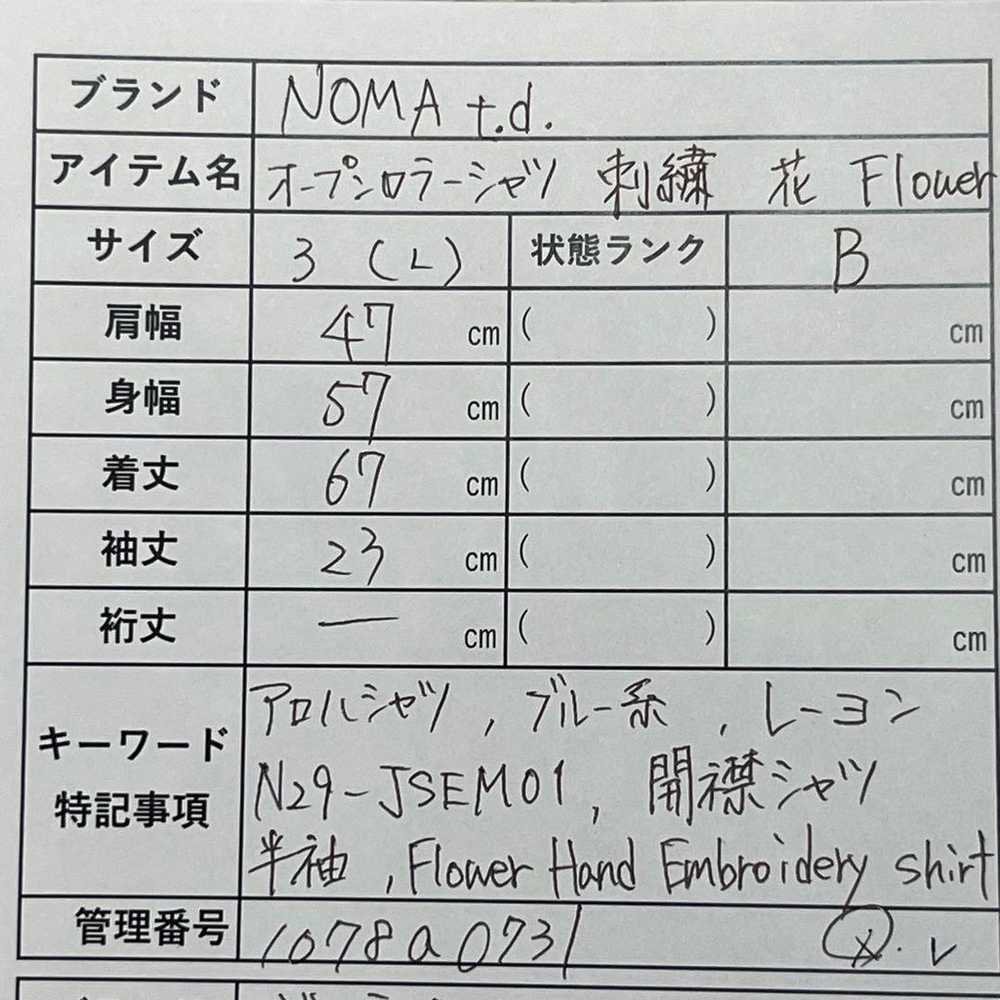 ブランド NOMA t.d.
アイテム名 オープンカラーシャツ 刺繍 花 Flower
サイズ 3 (L) 状態ランク B
肩幅 47 cm ( ) cm
身幅 57 cm ( ) cm
着丈 67 cm ( ) cm
袖丈 23 cm ( ) cm
裄丈 — cm ( ) cm
キーワード
特記事項
アロハシャツ, ブルー系, レーヨン
N29-JSEM01, 開襟シャツ
半袖, Flower Hand Embroidery shirt
管理番号 1078a0731